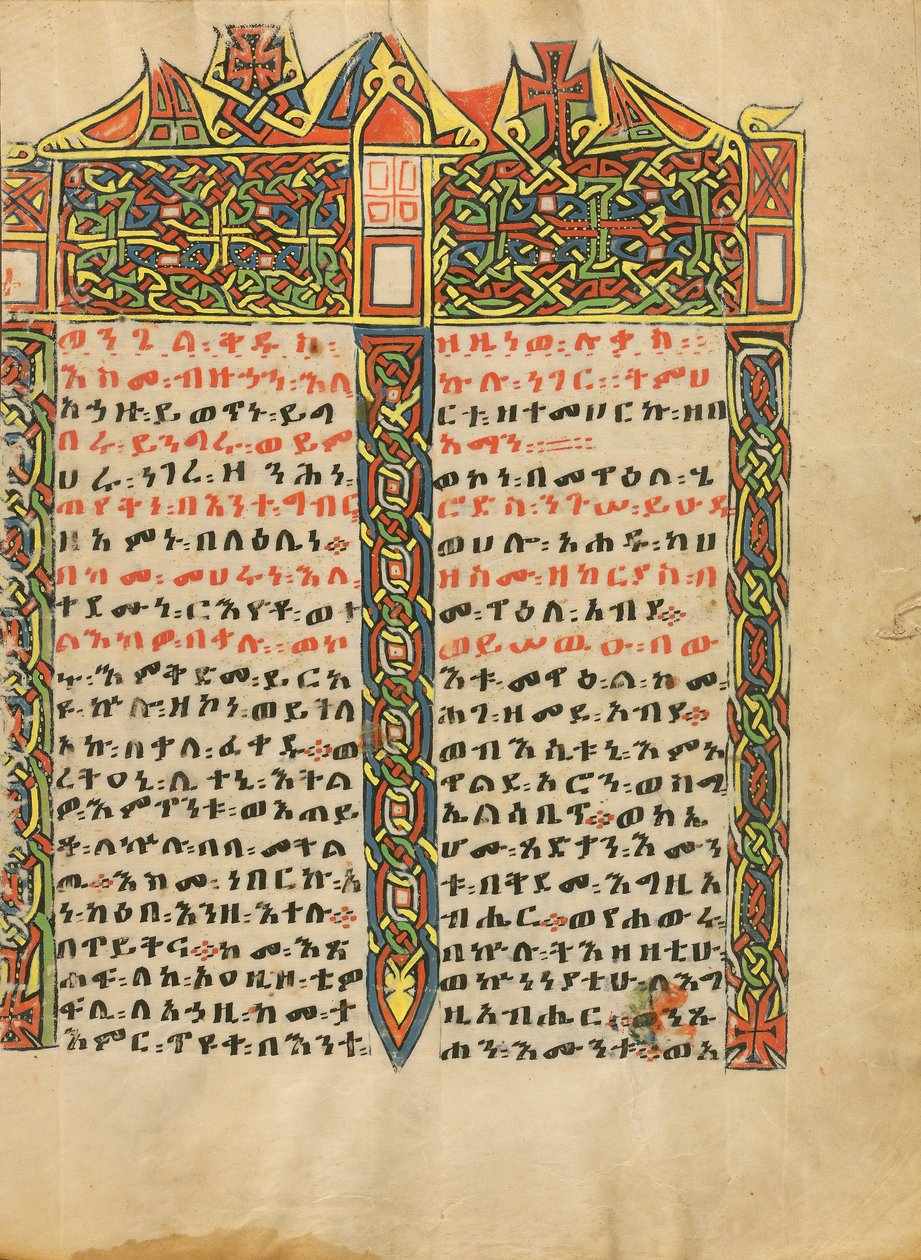 ወንጌል፡ቅዱስ፡
እስመ፡ብዙኃን፡እለ
አኃዙ፡ይወጥኑ፡ይግ
በሩ፡ይንግሩ፡ወይም
ሀሩ፡ነገረ፡ዘንሕነ
ጠየቅነ፡በእንተ፡ግብር
ዘአምኑ፡በላዕሌነ፨
በከመ፡መሀሩነ፡እለ፡
ቀደሙነ፡ርእዮቶ፡ወተ
ልእክዎ፡በቃሉ፡ወኮ
ኑ፡እምቅድመ፡ይርአ
ዩ፡ኵሎ፡ዘኮነ፡ወይተለ
አኩ፡በቃለ፡ፈቀዱ፨ወ
ረትዐኒ፡ሊተኒ፡እትል
ዎ፡እምጥንቱ፡ወአጠይ
ቆ፡ለኵሉ፡በበ፡መትል
ው፨እስመ፡ነበርኩ፡አ
ነ፡ከዕበ፡እንዘ፡አተሉ፨
በጥይቅና፨ከመ፡እጽ
ሐፍ፡ለከ፡አዐዚዘ፡ቴዎ
ፍሊ፡ለአኃዚ፡ከመ፡ታ
እምር፡ጥዩቀ፡በእንተ፡
ዘዜነወ፡ሉቃስ፡፡
ኵሉ፡ነገር፡፡ትምህ
ርቱ፡ዘተመሀርኩ፡ዘበ
አማን፡፡
ወኮነ፡በመዋዕለ፡ሄ
ሮድስ፡ንጉሠ፡ይሁዳ፡
ወሀሎ፡አሐዱ፡ካህ
ዘስሙ፡ዘካርያስ፡በ
መዋዕለ፡አብያ፨
ወይሠውዑ፡በው
እቱ፡መዋዕል፡ከመ፡
ሕገ፡ዘመደ፡አብያ፨
ወብእሲቱኒ፡እምአ
ዋልደ፡አሮን፡ወስማ
ኤልሳቤጥ፨ወክኤ
ሆሙ፡ጻድቃን፡እሙን
ቱ፡በቅደመ፡እግዚአ
ብሔር፨ወየሐውሩ፡
በኵሉ፡ትእዛዘቲሁ፡
ወኵነኔያቲሁ፡ለእግ
ዚአብሔር፡መንጹ
ሐን፡እሙንቱ፨ወአ